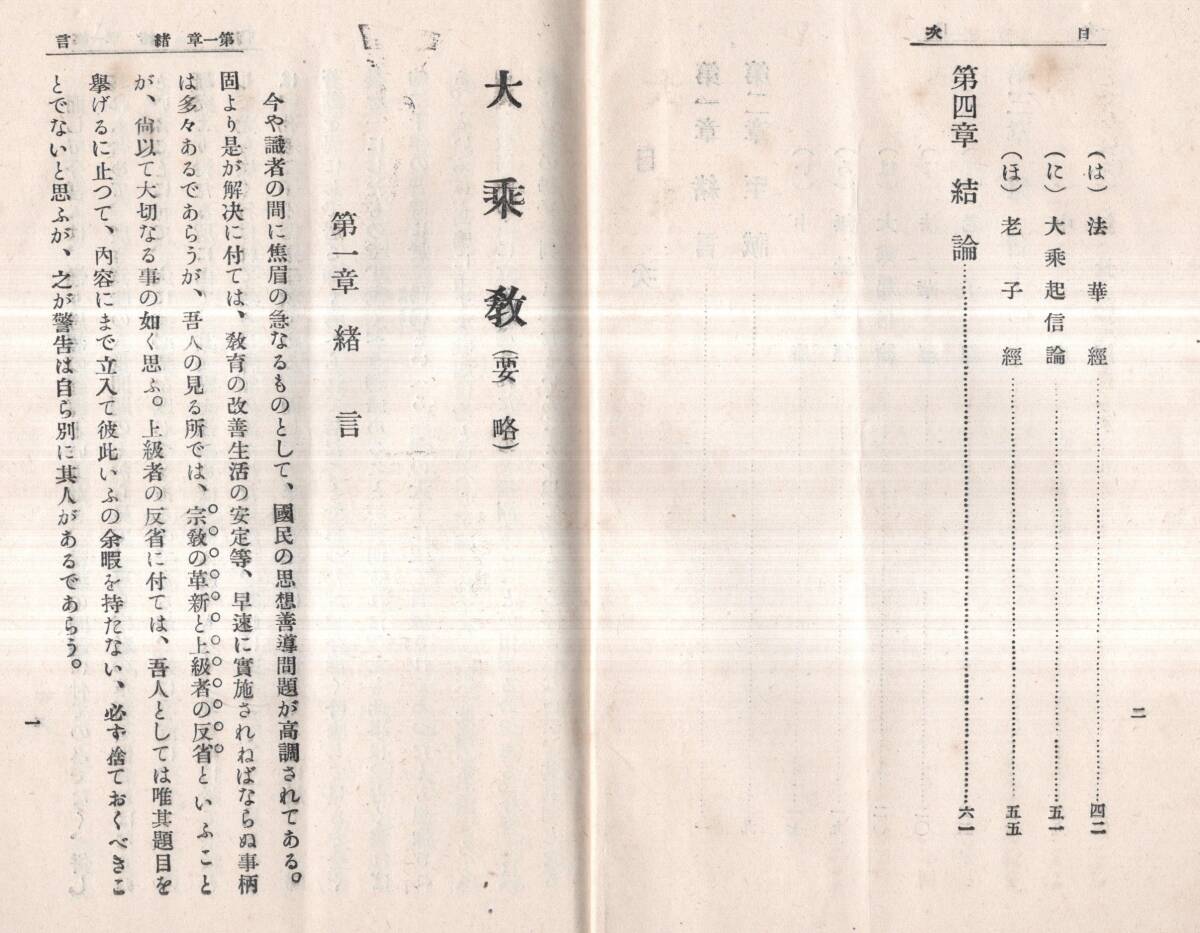 目次
(は) 法華經……四二
(に) 大乘起信論……五一
(ほ) 老子經……五五
第四章 結論……六一
二
大乘敎(要略)
第一章 緒言
今や識者の間に焦眉の急なるものとして、國民の思想善導問題が高調されてある。
固より是が解決に付ては、敎育の改善生活の安定等、早速に實施されねばならぬ事柄
は多々あるであらうが、吾人の見る所では、宗敎の革新と上級者の反省といふこと
が、尙以て大切なる事の如く思ふ。上級者の反省に付ては、吾人としては唯其題目を
擧げるに止つて、內容にまで立入て彼此いふの余暇を持たない、必ず捨ておくべきこ
とでないと思ふが、之が警告は自ら別に其人があるであらう。
第一章 緒言
一